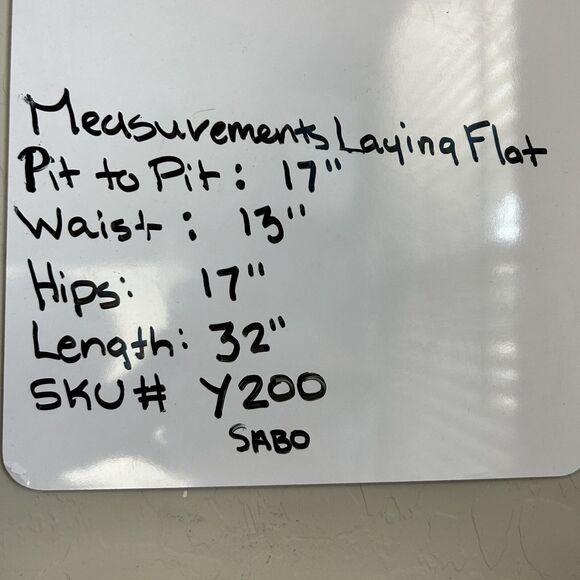 Measurements Laying Flat
Pit to Pit: 17"
Waist: 13"
Hips: 17"
Length: 32"
SKU# Y200
SABO